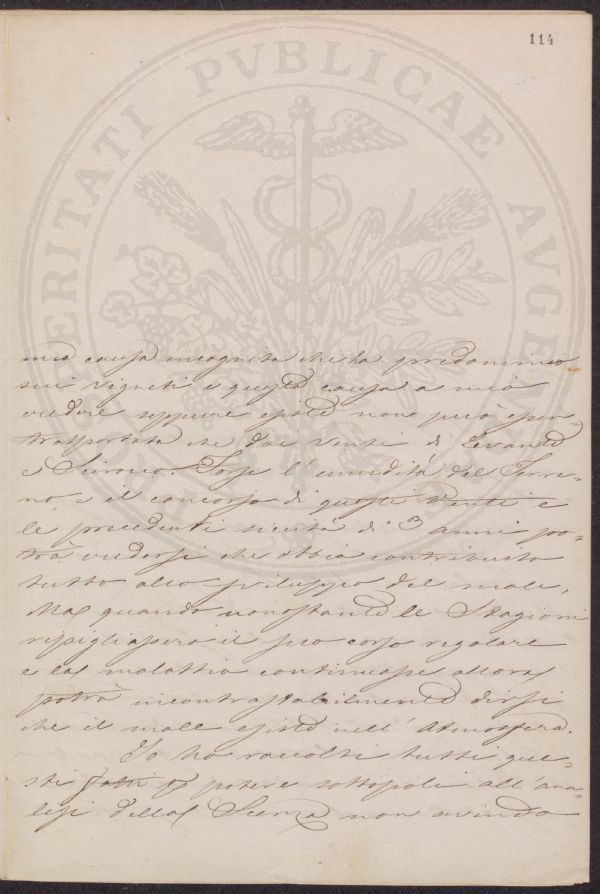 114
PROSPERITATI PVBLICAE AVGENDAE
una causa incognita che ha predominio
sui vigneti e questa causa a mio
credere seppure esiste non può esser
trasportata che dai venti di Levante
e Scirocco. Forse l'umidità del Terre-
no e il concorso di questi Venti e
le precedenti siccità di 3 anni po-
trà credersi che abbia contribuito
tutto allo sviluppo del male,
Ma quando nonostante le Stagioni
ripigliassero il suo corso regolare
e la malattia continuasse allora
potrà incontrastabilmente dirsi
che il male esiste nell'Atmosfera.
Io ho raccolti tutti que-
sti fatti p potere sottopoli all'ana-
lisi della Scienza non avendo